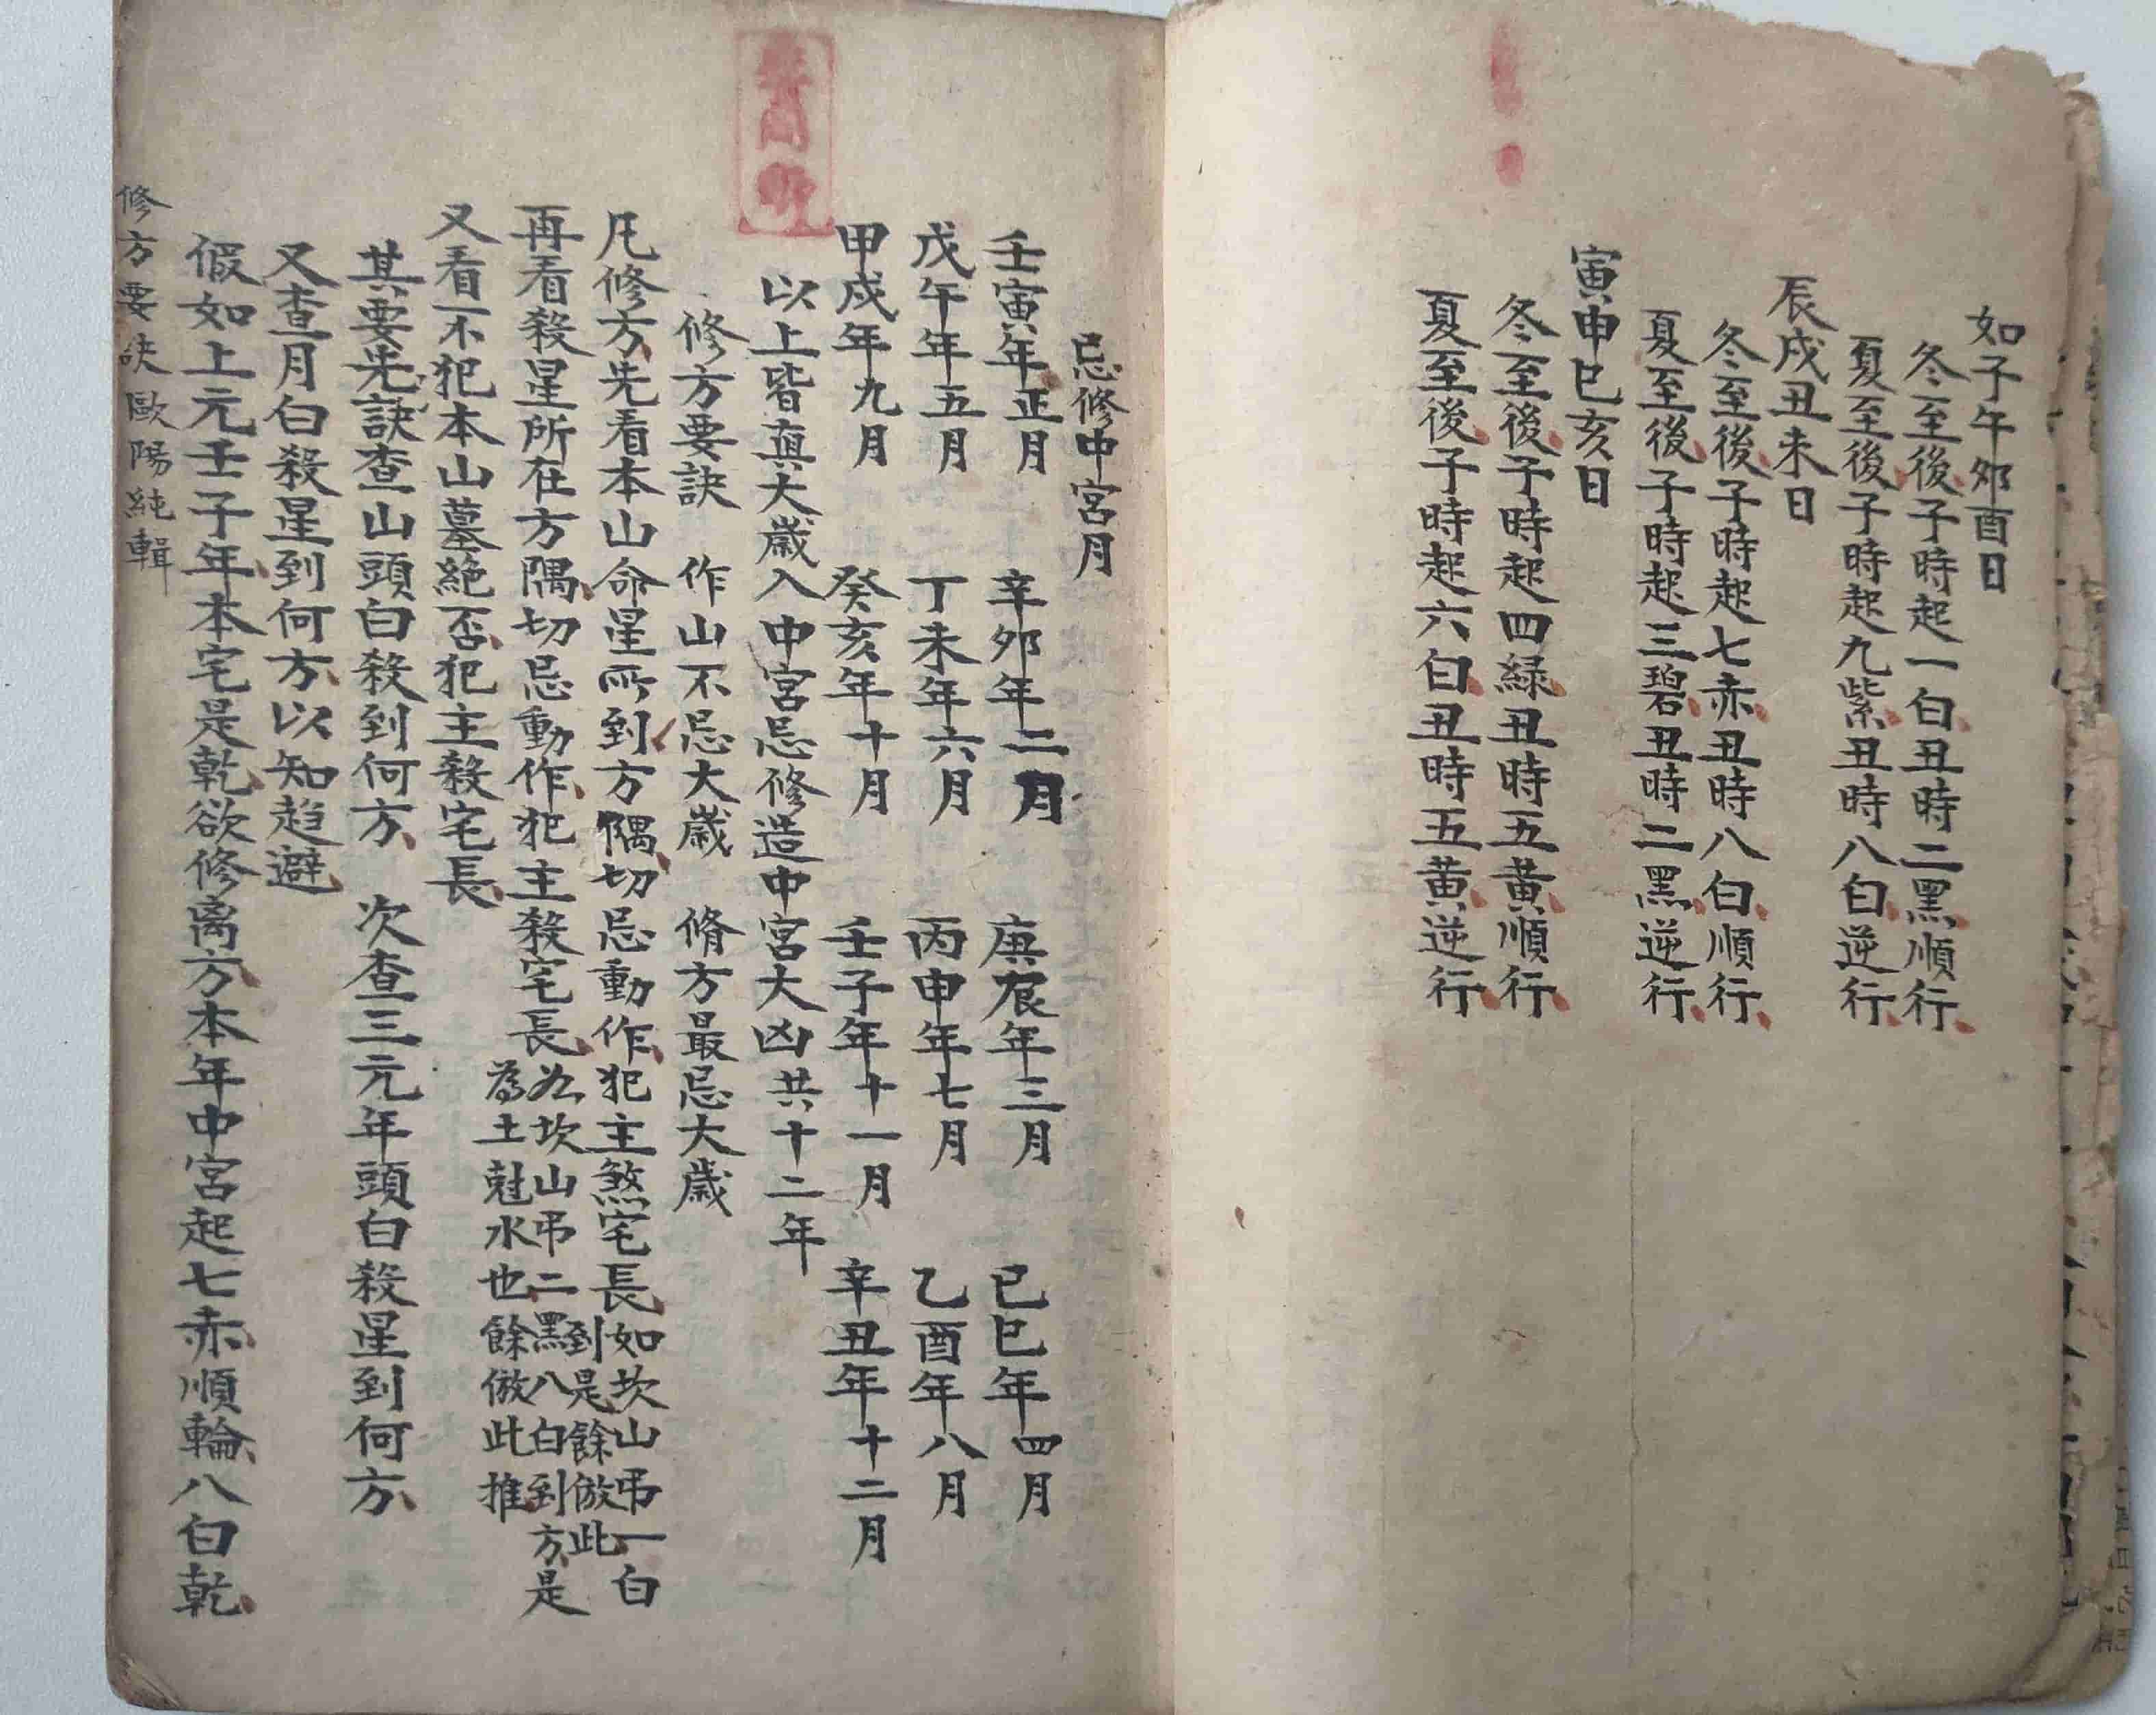 如子午夘酉日
冬至後子時起一白丑時二黑順行
夏至後子時起九紫丑時八白逆行
辰戌丑未日
冬至後子時起七赤丑時八白順行
夏至後子時起三碧丑時二黑逆行
寅申巳亥日
冬至後子時起四緑丑時五黃順行
夏至後子時起六白丑時五黃逆行
忌修中宮月
壬寅年正月 辛夘年二月 庚辰年三月 已巳年四月
戊午年五月 丁未年六月 丙申年七月 乙酉年八月
甲戌年九月 癸亥年十月 壬子年十一月 辛丑年十二月
以上皆真大歲入中宮忌修造中宮大凶共十二年
修方要訣 作山不忌大歲 脩方最忌大歲
凡修方先看本山命星所到方隅切忌動作犯主煞宅長如坎山弔一白
到是餘倣此
再看殺星所在方隅切忌動作犯主殺宅長如坎山弔二黑八白到方是
為土尅水也餘倣此推
又看不犯本山墓絶否犯主殺宅長
其要先訣查山頭白殺到何方 次查三元年頭白殺星到何方
又查月白殺星到何方以知趋避
假如上元壬子年本宅是乾欲修离方本年中宮起七赤順輪八白乾
修方要訣歐陽純輯